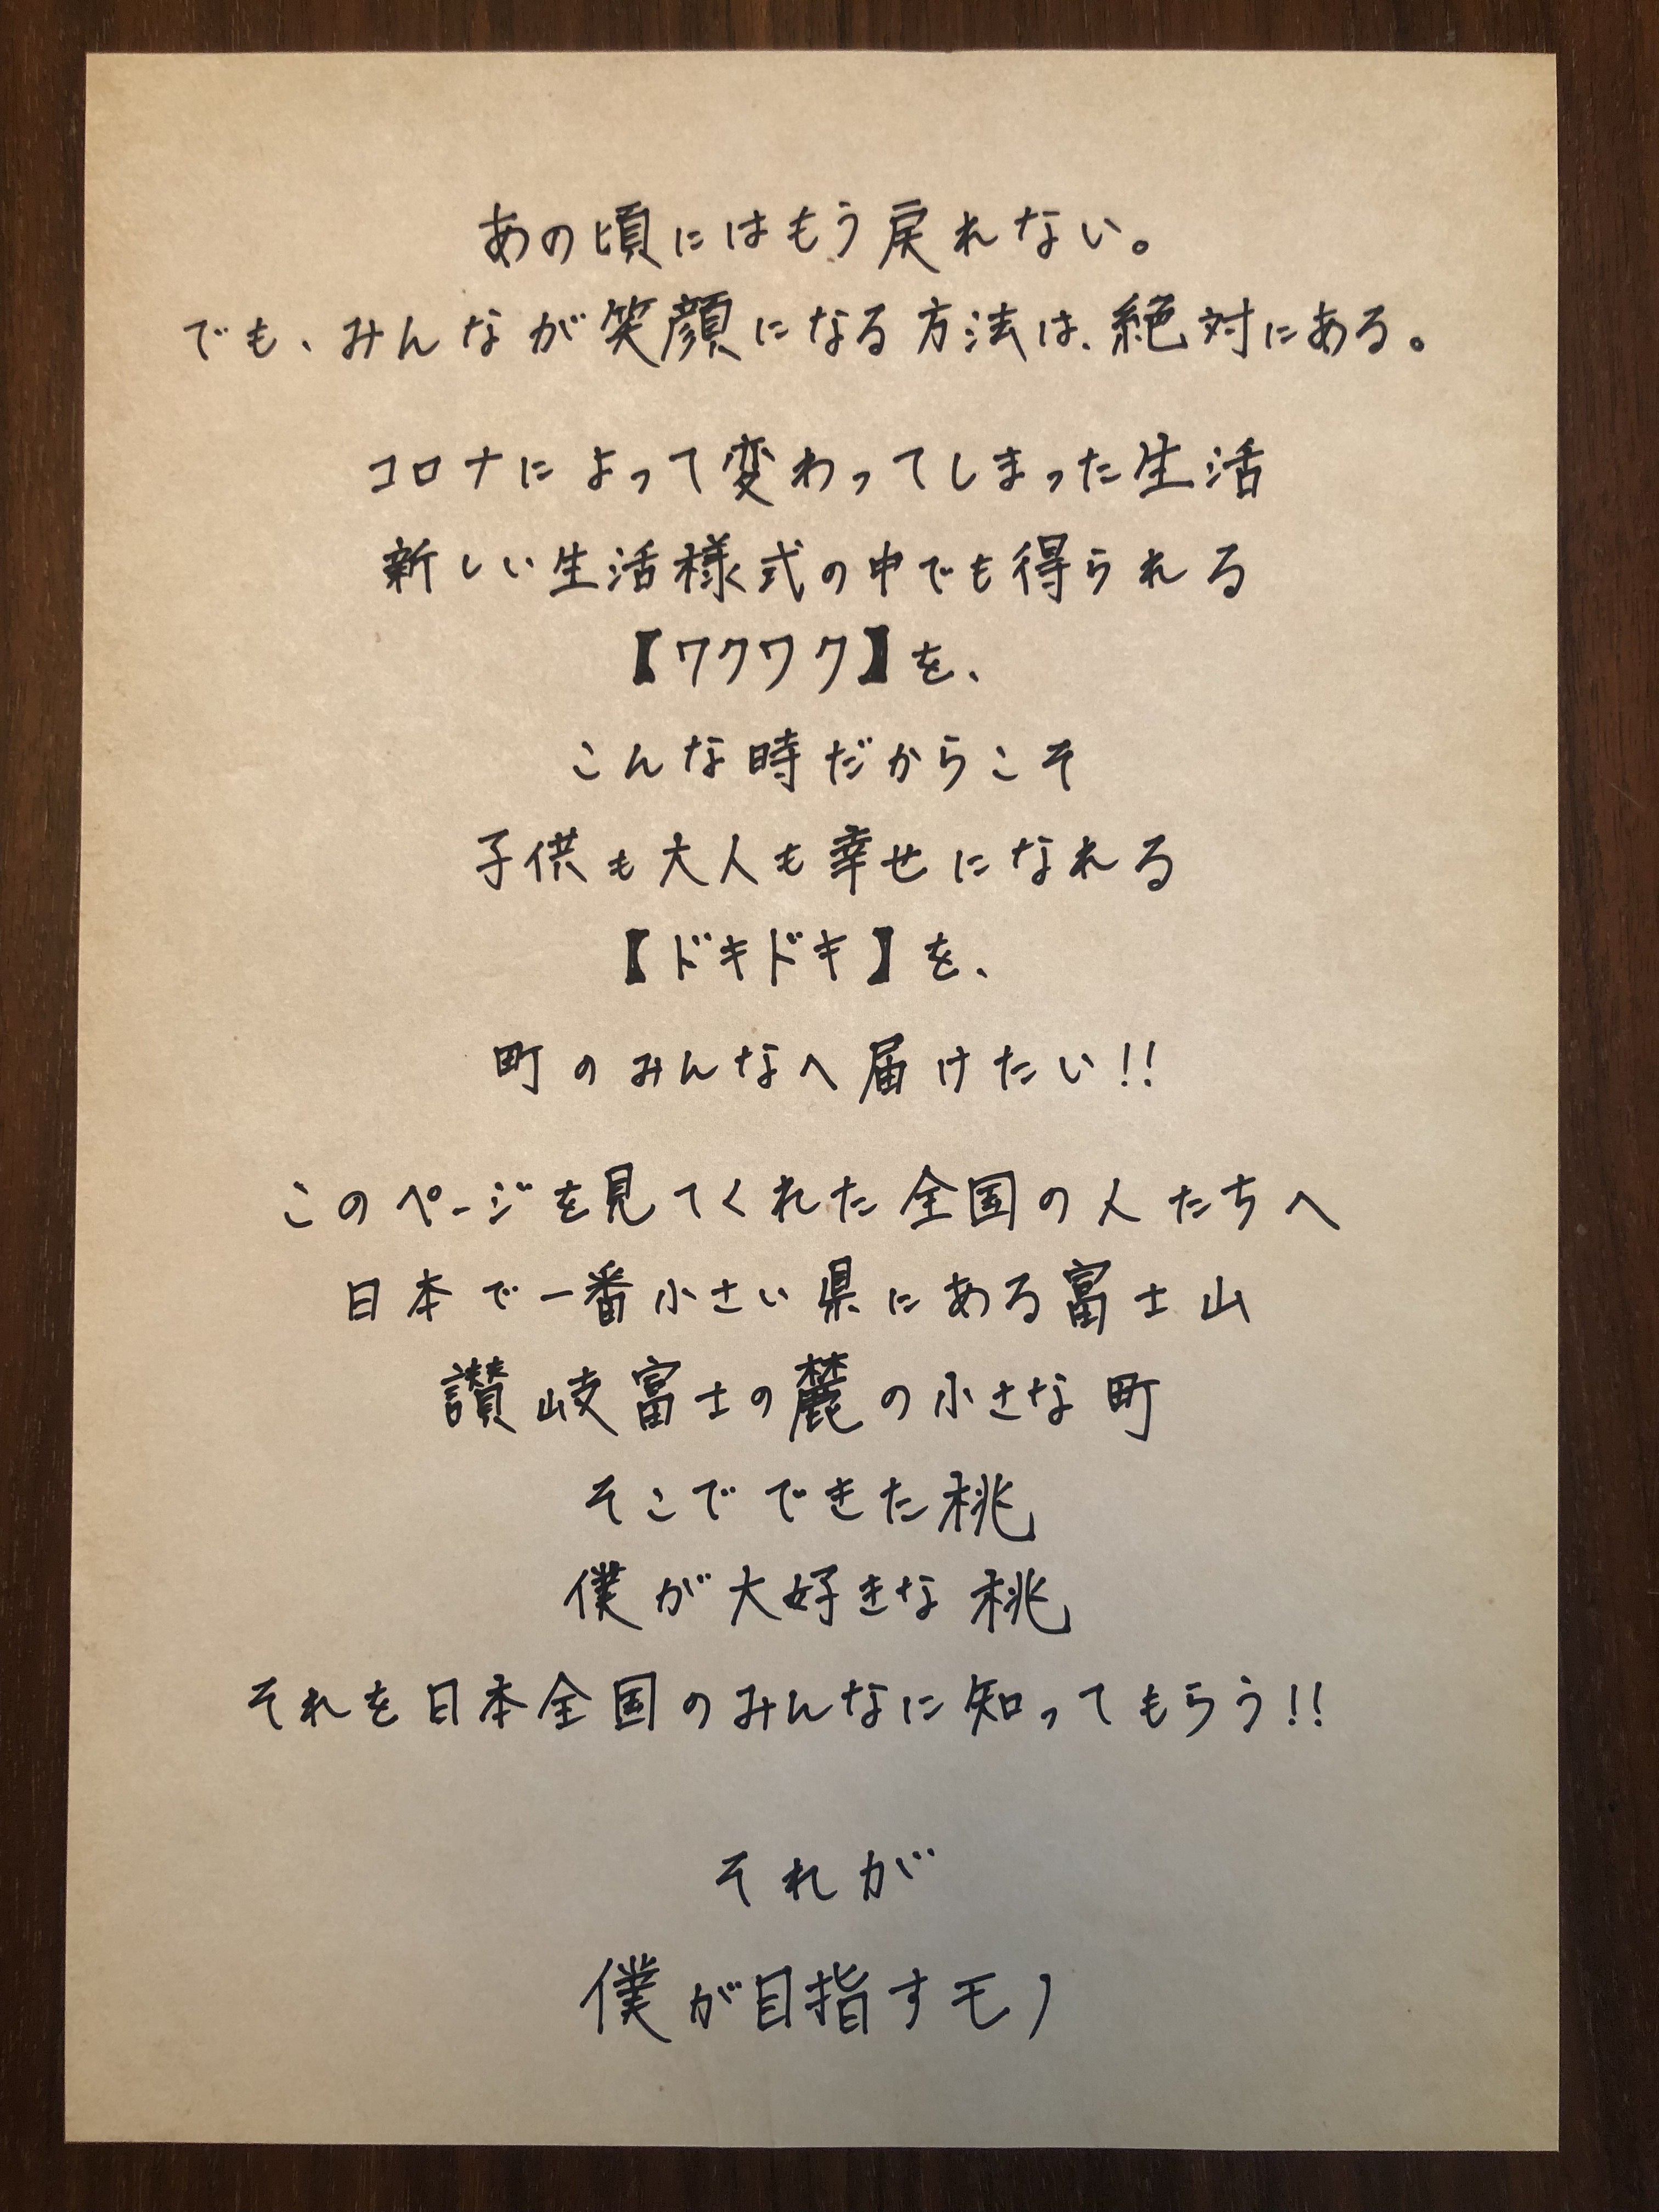 あの頃にはもう戻れない。
でも、みんなが笑顔になる方法は、絶対にある。
コロナによって変わってしまった生活
新しい生活様式の中でも得られる
【ワクワク】を、
こんな時だからこそ
子供も大人も幸せになれる
【ドキドキ】を、
町のみんなへ届けたい!!
このページを見てくれた全国の人たちへ
日本で一番小さい県にある富士山
讃岐富士の麓の小さな町
そこでできた桃
僕が大好きな桃
それを日本全国のみんなに知ってもらう!!
それが
僕が目指すモノ